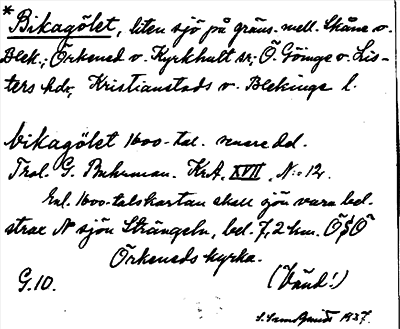 * Bikagölet, liten sjö på gräns. mell. Skåne o.
Blek.; Örkened o. Kyrkhult sr; Ö. Göinge o. Lis-
ters hdr, Kristianstads o. Blekinge l.
Vikagölet 1600-tal. senare del.
Trol. G. Buhrman. KrA. XVII, N:o 12.
Enl. 1600-talskartan skall sjön vara bel.
strax N sjön Strängeln, bel. 7,2 km. ÖSÖ
Örkeneds kyrka.
G.10. (Vänd!)
1937.